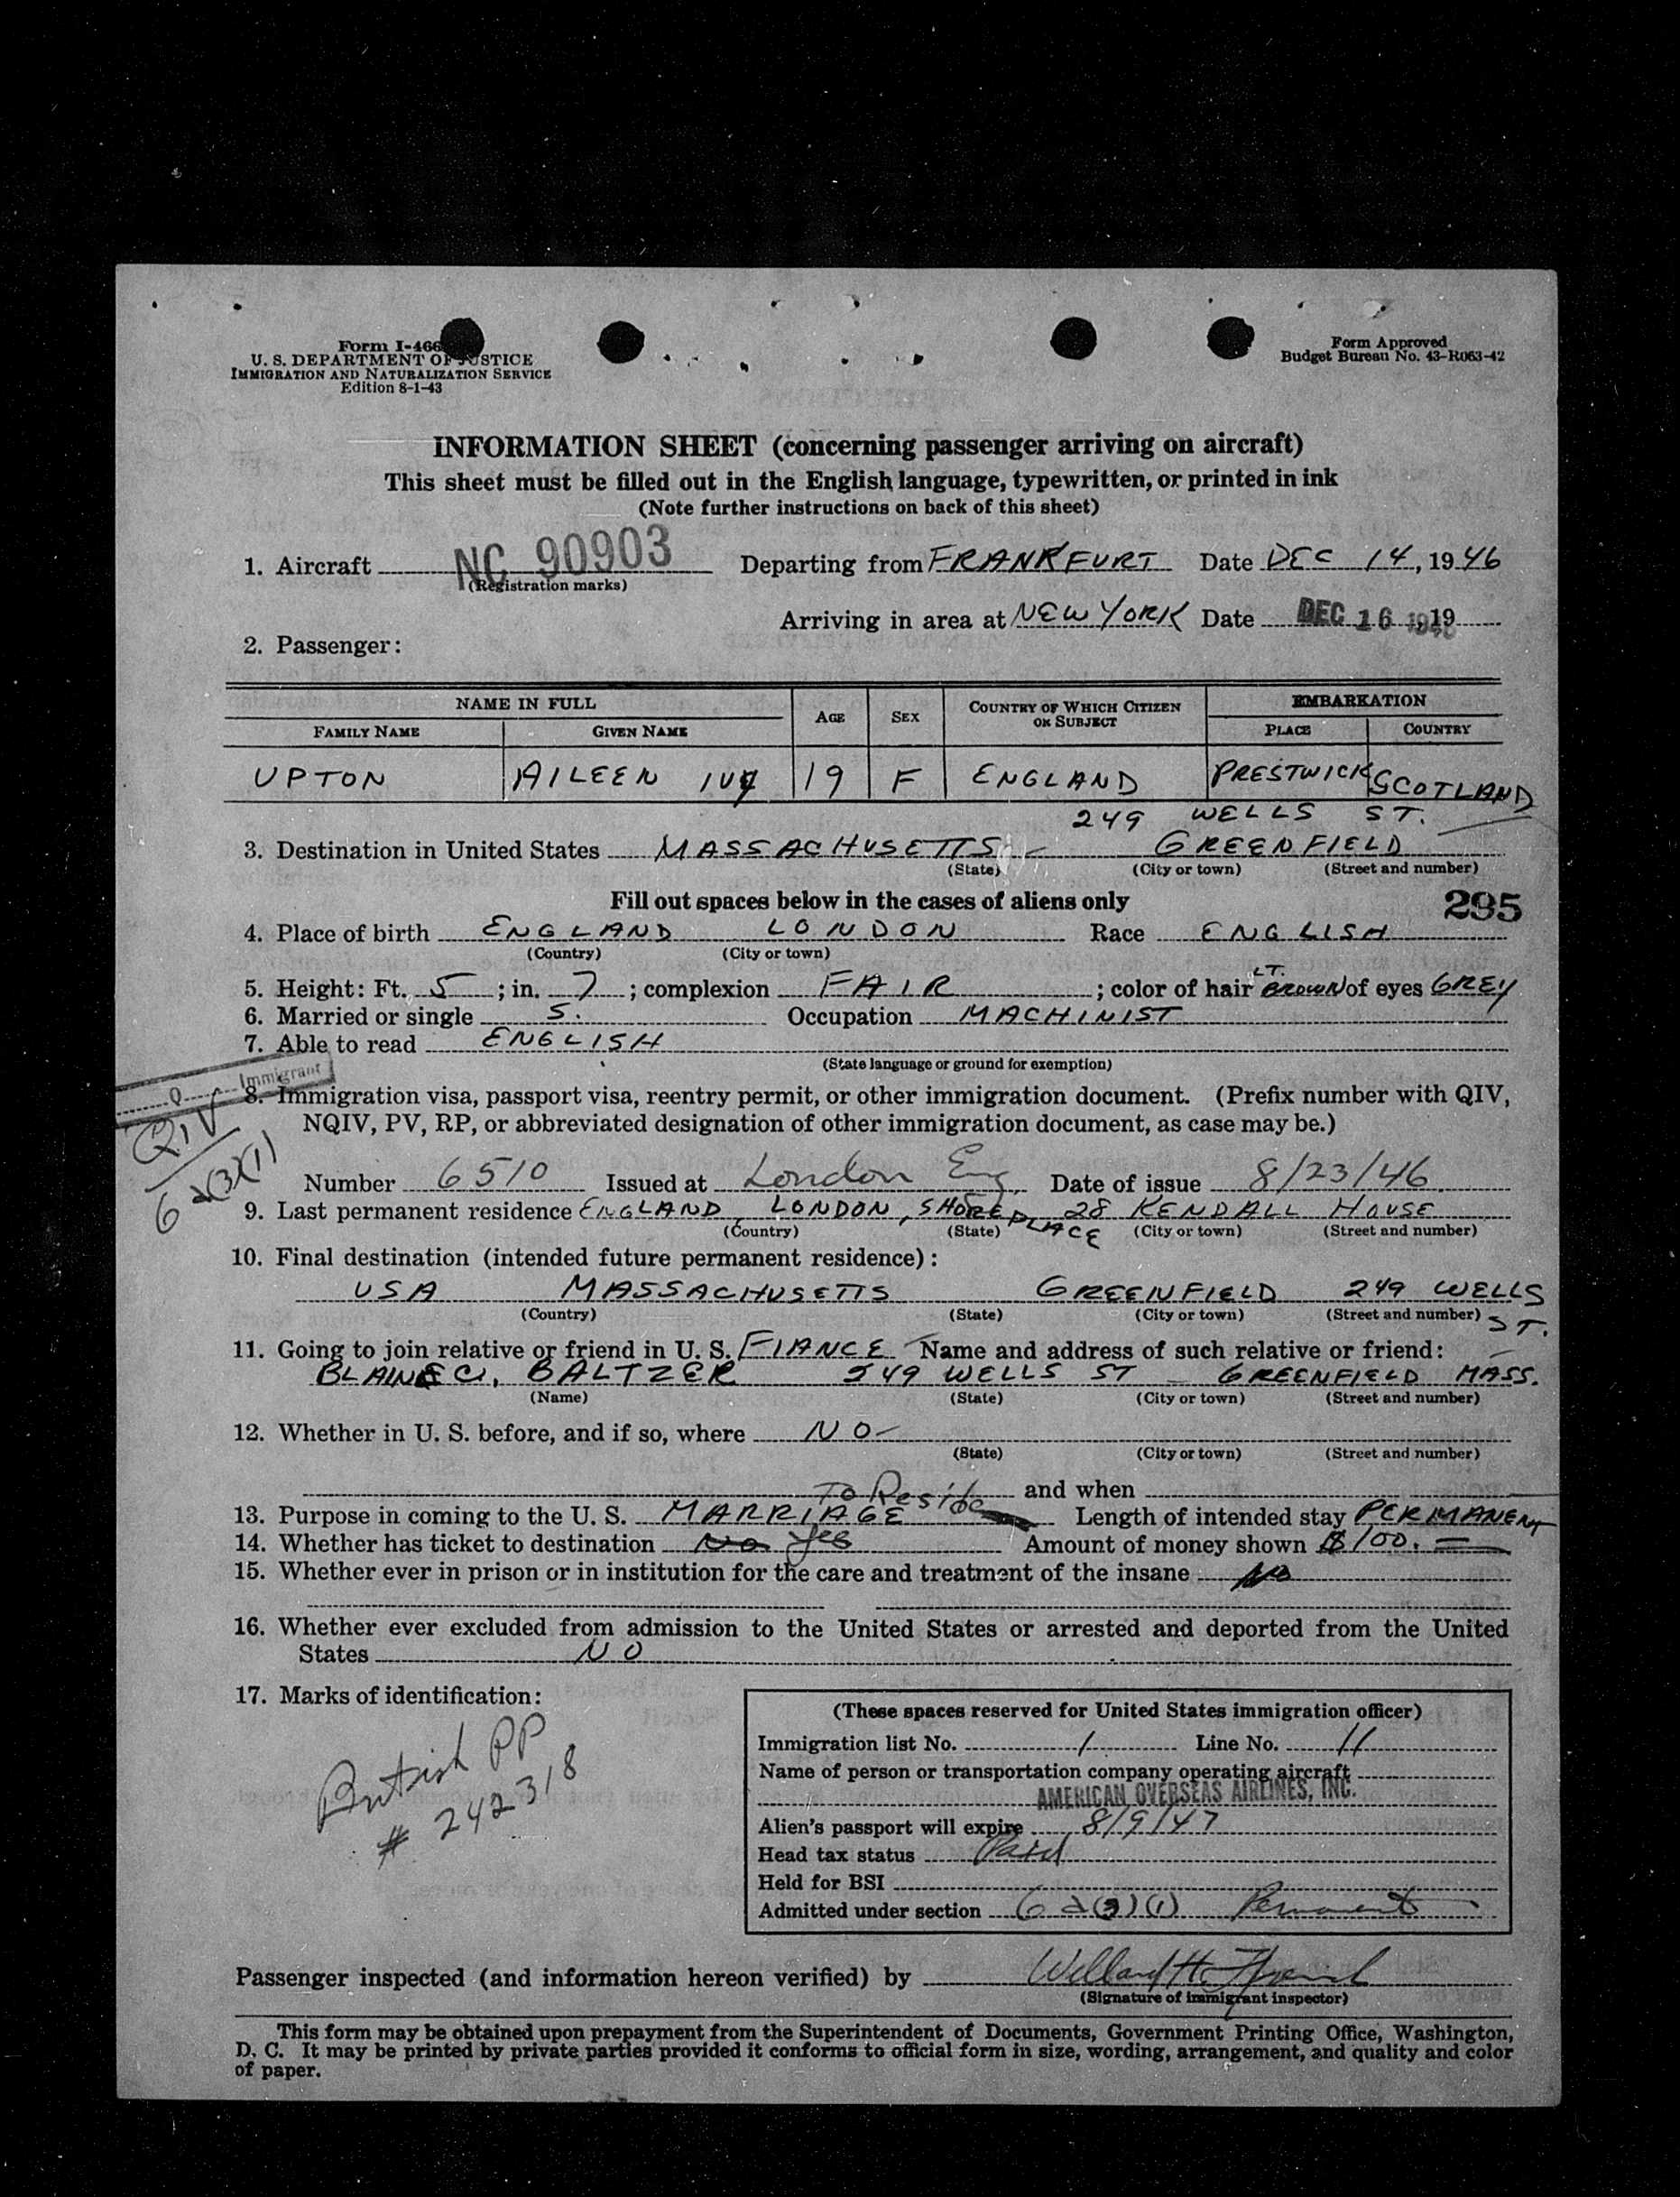 Form I-466
U. S. DEPARTMENT OF JUSTICE
IMMIGRATION AND NATURALIZATION SERVICE
Edition 8-1-43
Form Approved
Budget Bureau No. 43-R063-42
INFORMATION SHEET (concerning passenger arriving on aircraft)
This sheet must be filled out in the English language, typewritten, or printed in ink
(Note further instructions on back of this sheet)
1. Aircraft NC 90903 Departing from FRANKFURT Date DEC 14, 1946
(Registration marks)
Arriving in area at NEW YORK Date DEC 16 1946, 19
2. Passenger:
NAME IN FULL AGE SEX COUNTRY OF WHICH CITIZEN OR SUBJECT EMBARKATION
FAMILY NAME GIVEN NAME PLACE COUNTRY
UPTON AILEEN IVY 19 F ENGLAND PRESTWICK SCOTLAND
249 WELLS ST.
3. Destination in United States MASSACHUSETTS - GREENFIELD
(State) (City or town) (Street and number)
Fill out spaces below in the cases of aliens only 295
4. Place of birth ENGLAND LONDON Race ENGLISH
(Country) (City or town)
5. Height: Ft. 5; in. 7; complexion FAIR; color of hair LT. BROWN of eyes GREY
6. Married or single S. Occupation MACHINIST
7. Able to read ENGLISH
(State language or ground for exemption)
Immigrant
QIV
6 2(3)(1)
8. Immigration visa, passport visa, reentry permit, or other immigration document. (Prefix number with QIV,
NQIV, PV, RP, or abbreviated designation of other immigration document, as case may be.)
Number 6510 Issued at London Eng. Date of issue 8/23/46
9. Last permanent residence ENGLAND, LONDON, SHORE PLACE 28 KENDALL HOUSE
(Country) (State) (City or town) (Street and number)
10. Final destination (intended future permanent residence):
USA MASSACHUSETTS GREENFIELD 249 WELLS ST.
(Country) (State) (City or town) (Street and number)
11. Going to join relative or friend in U. S. FIANCE Name and address of such relative or friend:
BLAINE C. BALTZER 249 WELLS ST - GREENFIELD MASS.
(Name) (State) (City or town) (Street and number)
12. Whether in U. S. before, and if so, where NO-
(State) (City or town) (Street and number)
and when
To Reside
13. Purpose in coming to the U. S. MARRIAGE Length of intended stay PERMANENT
14. Whether has ticket to destination No Yes Amount of money shown $100.
15. Whether ever in prison or in institution for the care and treatment of the insane NO
16. Whether ever excluded from admission to the United States or arrested and deported from the United
States NO
17. Marks of identification:
British PP
# 242318
(These spaces reserved for United States immigration officer)
Immigration list No. 1 Line No. 11
Name of person or transportation company operating aircraft
AMERICAN OVERSEAS AIRLINES, INC.
Alien's passport will expire 8/9/47
Head tax status Paid
Held for BSI
Admitted under section 6 2(3)(1) Permanent
Passenger inspected (and information hereon verified) by Willard H.
(Signature of immigrant inspector)
This form may be obtained upon prepayment from the Superintendent of Documents, Government Printing Office, Washington,
D. C. It may be printed by private parties provided it conforms to official form in size, wording, arrangement, and quality and color
of paper.